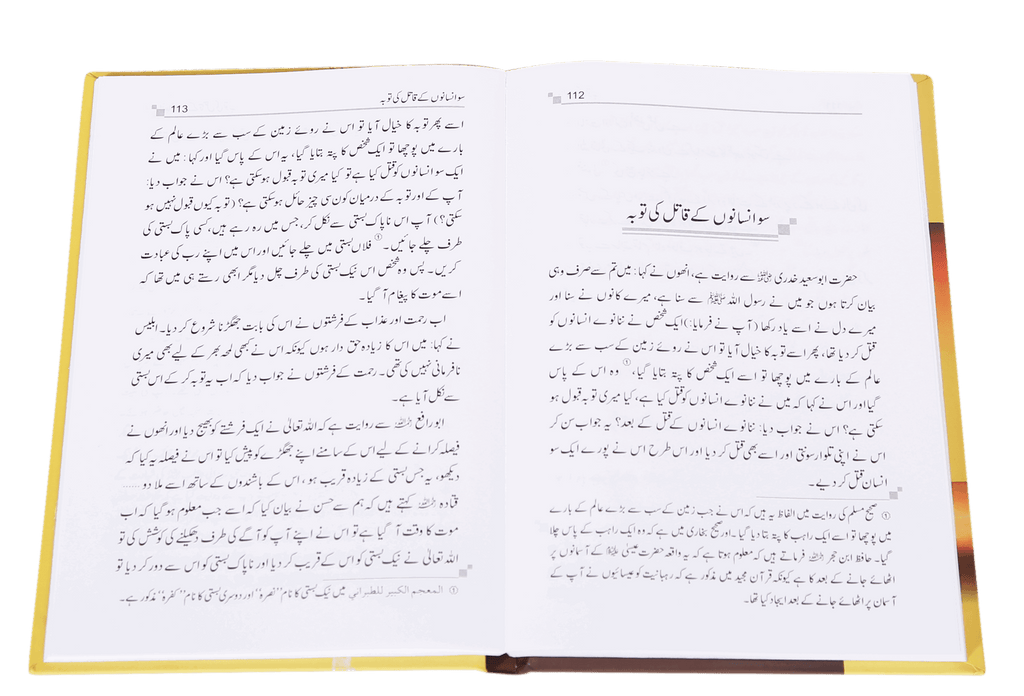 112
سو انسانوں کے قاتل کی توبہ
حضرت ابوسعید خدری ﷜ سے روایت ہے، انھوں نے کہا: میں تم سے صرف وہی
بیان کرتا ہوں جو میں نے رسول اللہ ﷺ سے سنا ہے، میرے کانوں نے سنا اور
میرے دل نے اسے یاد رکھا (آپ نے فرمایا:) ایک شخص نے ننانوے انسانوں کو
قتل کر دیا تھا، پھر اسے توبہ کا خیال آیا تو اس نے روئے زمین کے سب سے بڑے
عالم کے بارے میں پوچھا تو اسے ایک شخص کا پتہ بتایا گیا، ① وہ اس کے پاس
گیا اور اس نے کہا کہ میں نے ننانوے انسانوں کو قتل کیا ہے، کیا میری توبہ قبول ہو
سکتی ہے؟ اس نے جواب دیا: ننانوے انسانوں کے قتل کے بعد؟ یہ جواب سن کر
اس نے اپنی تلوار سونتی اور اسے بھی قتل کر دیا اور اس طرح اس نے پورے ایک سو
انسان قتل کر دیے۔
① صحیح مسلم کی روایت میں الفاظ یہ ہیں کہ اس نے جب زمین کے سب سے بڑے عالم کے بارے
میں پوچھا تو اسے ایک راہب کا پتا بتا دیا گیا۔ اور صحیح بخاری میں ہے کہ وہ ایک راہب کے پاس چلا
گیا۔ حافظ ابن حجر ﷫ فرماتے ہیں کہ معلوم ہوتا ہے کہ یہ واقعہ حضرت عیسیٰ ﷤ کے آسمانوں پر
اٹھائے جانے کے بعد کا ہے کیونکہ قرآن مجید میں مذکور ہے کہ رہبانیت کو عیسائیوں نے آپ کے
آسمان پر اٹھائے جانے کے بعد ایجاد کیا تھا۔
سو انسانوں کے قاتل کی توبہ 113
اسے پھر توبہ کا خیال آیا تو اس نے روئے زمین کے سب سے بڑے عالم کے
بارے میں پوچھا تو ایک شخص کا پتہ بتایا گیا، یہ اس کے پاس گیا اور کہا: میں نے
ایک سو انسانوں کو قتل کیا ہے تو کیا میری توبہ قبول ہوسکتی ہے؟ اس نے جواب دیا:
آپ کے اور توبہ کے درمیان کون سی چیز حائل ہوسکتی ہے؟ (توبہ کیوں قبول نہیں ہو
سکتی؟) آپ اس ناپاک بستی سے نکل کر، جس میں رہ رہے ہیں، کسی پاک بستی کی
طرف چلے جائیں۔ ① فلاں بستی میں چلے جائیں اور اس میں اپنے رب کی عبادت
کریں۔ پس وہ شخص اس نیک بستی کی طرف چل دیا مگر ابھی رستے ہی میں تھا کہ
اسے موت کا پیغام آ گیا۔
اب رحمت اور عذاب کے فرشتوں نے اس کی بابت جھگڑنا شروع کر دیا۔ ابلیس
نے کہا: میں اس کا زیادہ حق دار ہوں کیونکہ اس نے کبھی لمحہ بھر کے لیے بھی میری
نافرمانی نہیں کی تھی۔ رحمت کے فرشتوں نے جواب دیا کہ اب یہ توبہ کر کے اس بستی
سے نکل آیا ہے۔
ابورافع ﷫ سے روایت ہے کہ اللہ تعالیٰ نے ایک فرشتے کو بھیج دیا اور انھوں نے
فیصلہ کرانے کے لیے اس کے سامنے اپنے جھگڑے کو پیش کیا تو اس نے فیصلہ یہ کیا کہ
دیکھو، یہ جس بستی کے زیادہ قریب ہو، اس کے باشندوں کے ساتھ اسے ملا دو ......
قتادہ ﷫ کہتے ہیں کہ ہم سے حسن نے بیان کیا کہ اسے جب معلوم ہو گیا کہ اب
موت کا وقت آ گیا ہے تو اس نے اپنے آپ کو آگے کی طرف دھکیلنے کی کوشش کی تو
اللہ تعالیٰ نے نیک بستی کو اس کے قریب کر دیا اور ناپاک بستی کو اس سے دور کر دیا تو
① المعجم الكبير للطبراني میں نیک بستی کا نام ''نصرہ'' اور دوسری بستی کا نام ''کفرہ'' مذکور ہے۔